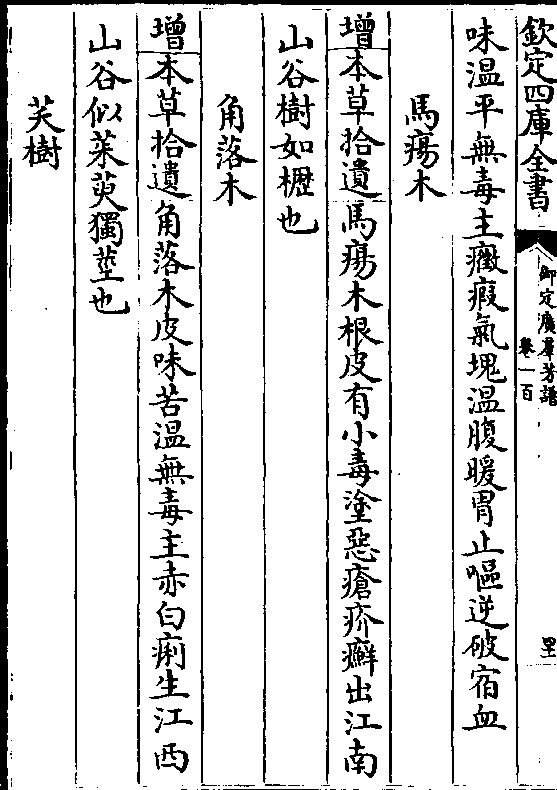 欽定四庫全書
御定廣羣芳譜
卷一百
味温平無毒主癥瘕氣塊温腹暖胃止嘔逆破宿血
馬瘍木
增本草拾遺馬瘍木根皮有小毒塗惡瘡疥癬出江南
山谷樹如櫪也
角落木
增本草拾遺角落木皮味苦温無毒主赤白痢生江西
山谷似茱萸獨莖也
芙樹